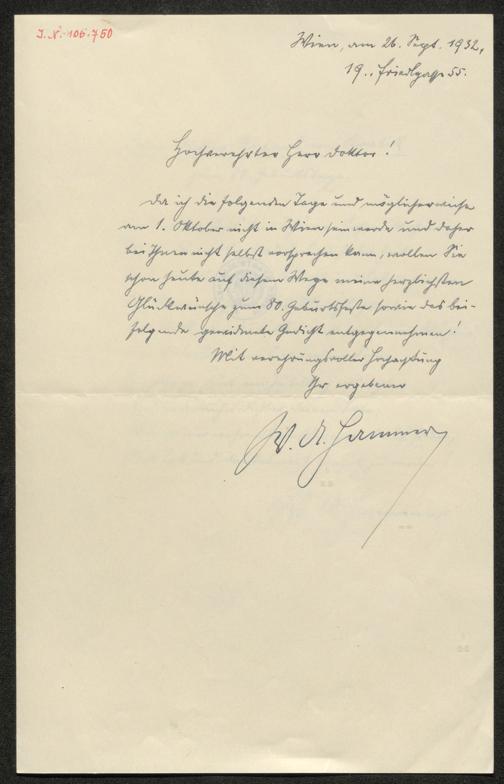 J.N. 106.750
Wien, am 26. Sept. 1932,
19., Friedlgasse 55.
Hochverehrter Herr Doktor!
Da ich die folgenden Tage und möglicherweise
am 1. Oktober nicht in Wien sein werde und daher
bei Ihnen nicht selbst vorsprechen kann, wollen Sie
schon heute auf diesem Wege meine herzlichsten
Glückwünsche zum 80. Geburtsfeste sowie das bei-
folgende gewidmete Gedicht entgegennehmen!
Mit verehrungsvoller Hochachtung
Ihr ergebener
W. A. Hammer